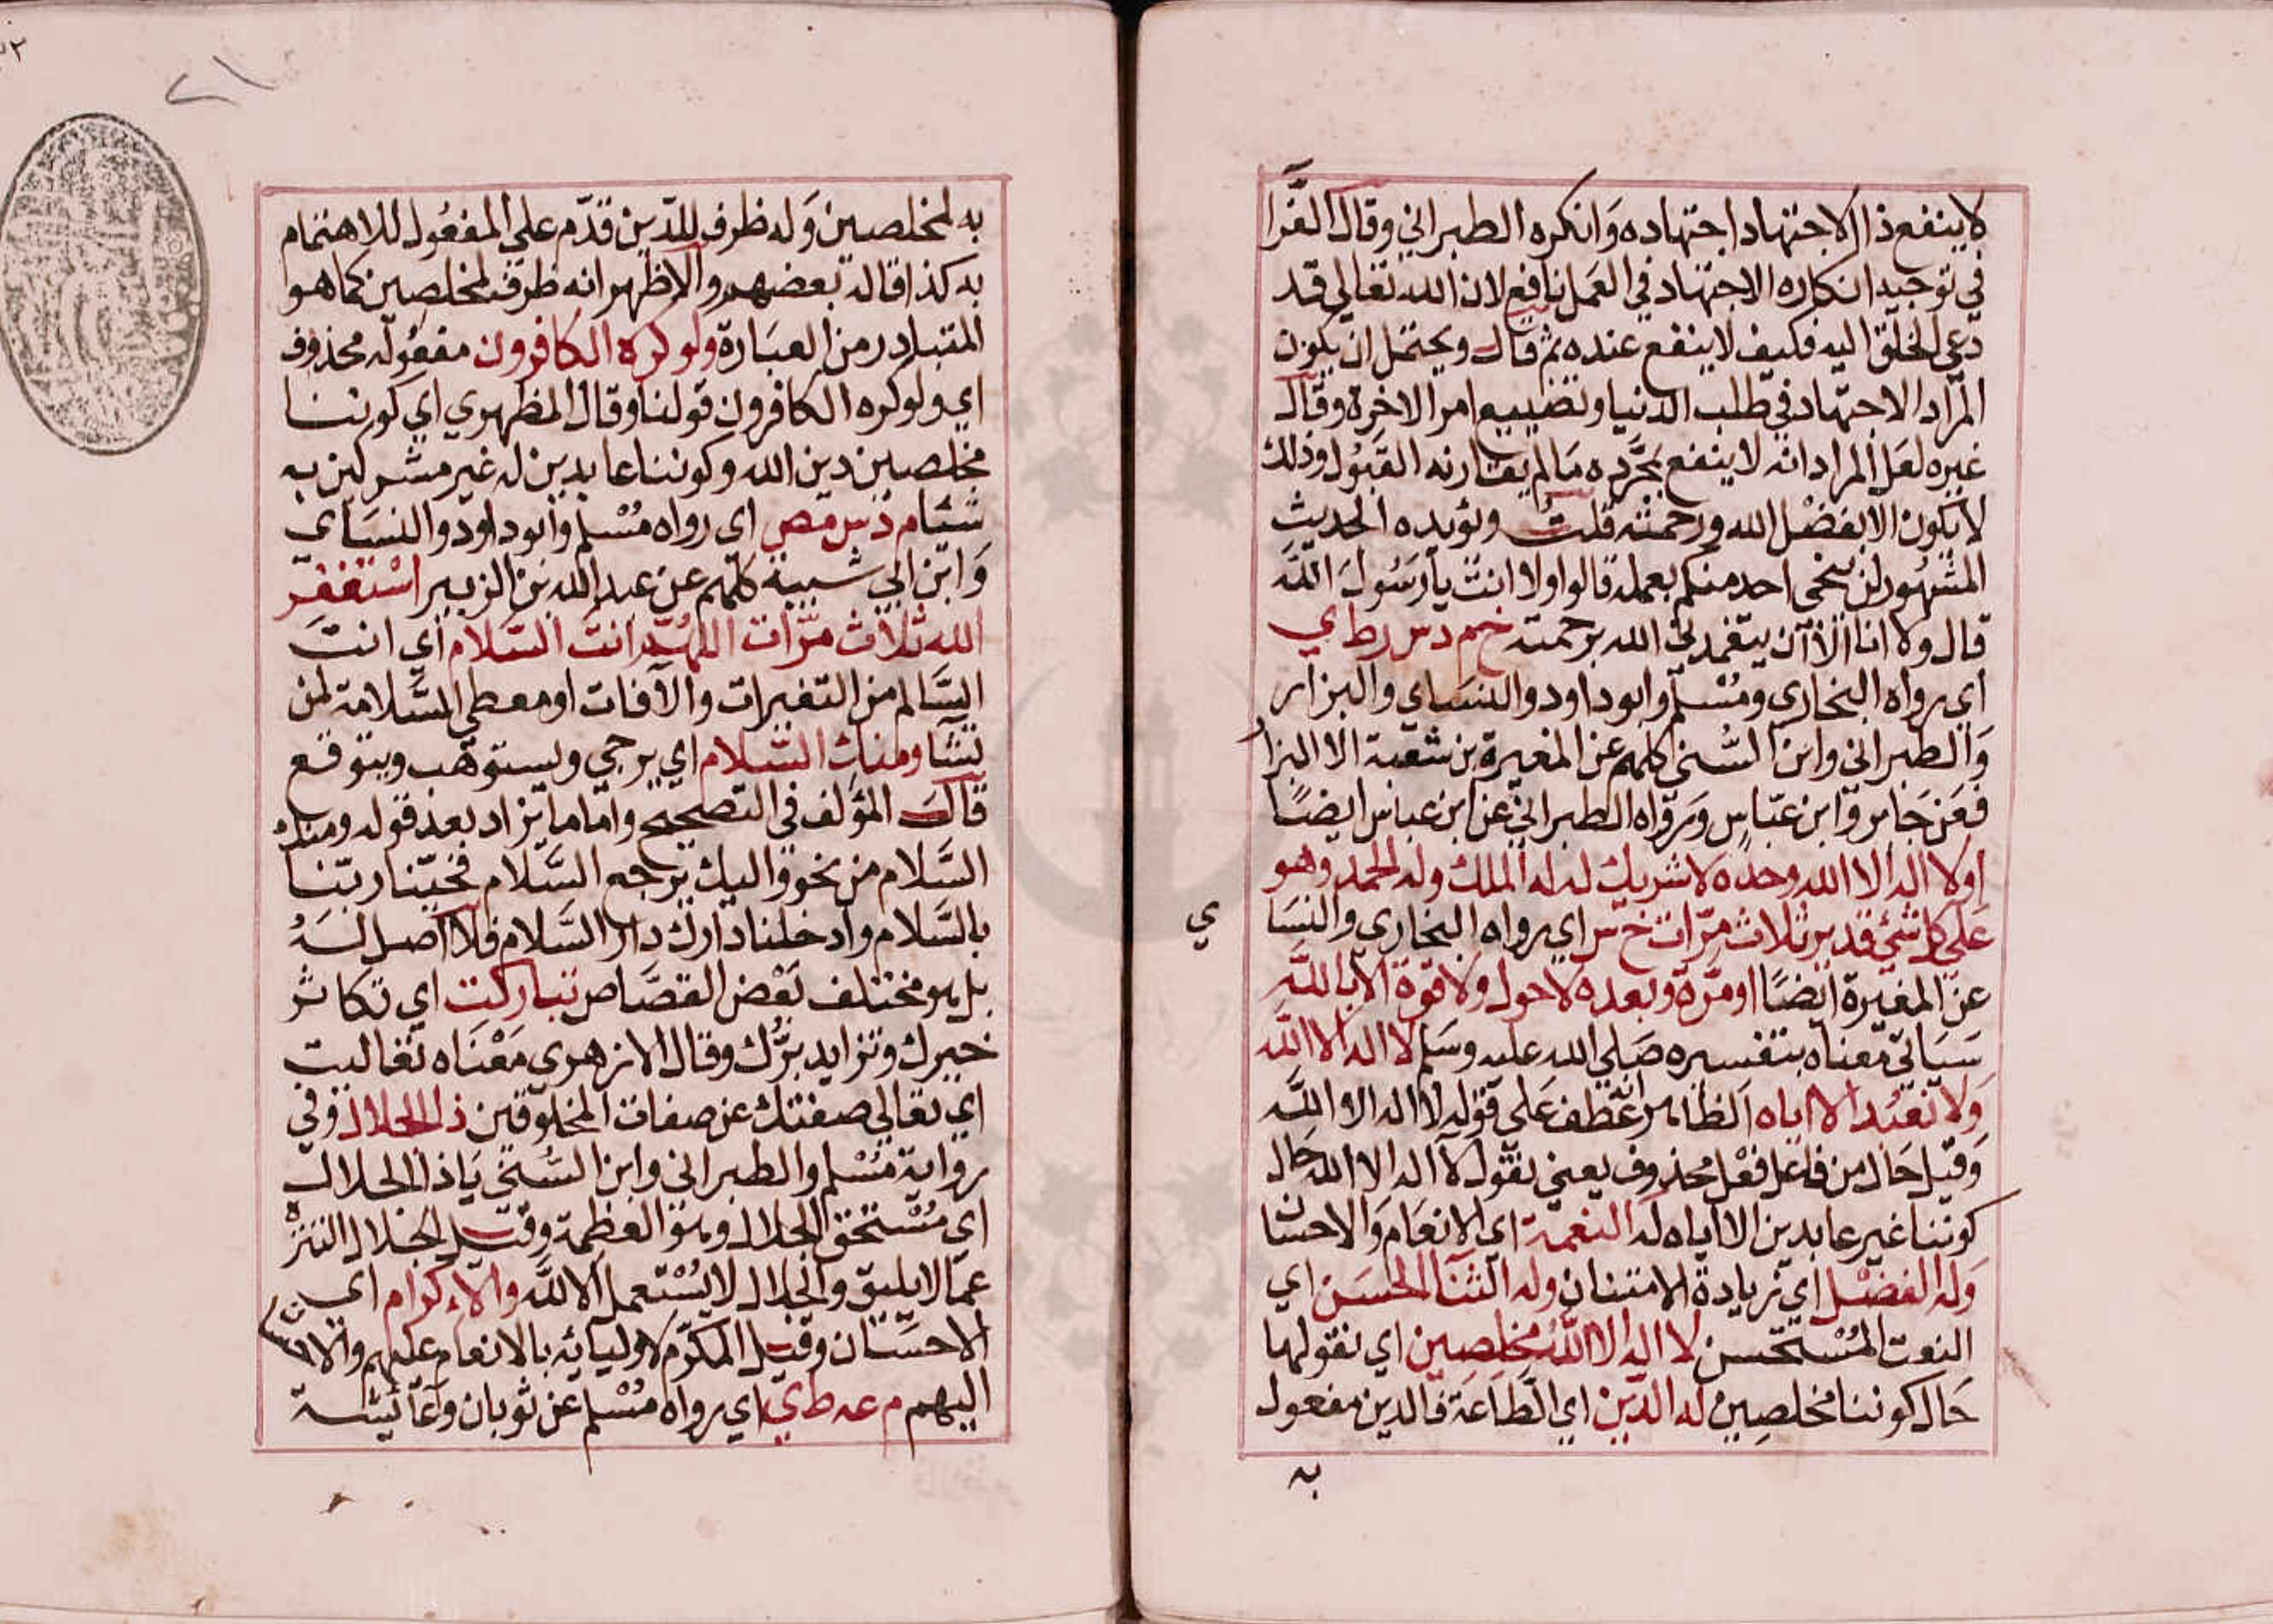 لا ينفع ذا الاجتهاد اجتهاده وانكره الطبراني وقال القزا
في توجيه انكاره الاجتهاد في العمل نافع لان الله تعالي قد
دعي الخلق اليه فكيف لا ينفع عنده ثم قال ويحتمل ان يكون
المراد الاجتهاد في طلب الدنيا وتضييع امر الاخرة وقال
غيره لعل المراد انه لا ينفع بمجرده ما لم يقارنه القبول وذلك
لا يكون الا بفضل الله ورحمته قلت ويؤيده الحديث
المشهور لن ينجي احد منكم بعمله قالوا ولا انت يا رسول الله
قال ولا انا الا ان يتغمدني الله برحمته خ م د س ر ط ي
اي رواه البخاري ومسلم وابو داود والنساي والبزار
والطبراني وابن السني كلهم عن المغيرة بن شعبة الا البزار
فعن جابر وابن عباس ورواه الطبراني عن ابن عباس ايضا
اولا اله الا الله وحده لا شريك له له الملك وله الحمد وهو
علي كل شئ قدير ثلاث مرات خ س اي رواه البخاري والنسا
ي
عن المغيرة ايضا او مرة وبعده لا حول ولا قوة الا بالله
سياتي معناه بتفسيره صلي الله عليه وسلم لا اله الا الله
ولا نعبد الا اياه الظاهر انه عطف علي قوله لا اله الا الله
وقيل حال من فاعل فعل محذوف يعني نقول لا اله الا الله حال
كوننا غير عابدين الا اياه له النعمة اي الانعام والاحسان
وله الفضل اي زيادة الامتنان وله الثنا الحسن اي
النعت المستحسن لا اله الا الله مخلصين اي نقولها
حال كوننا مخلصين له الدين اي الطاعة فالدين مفعول
به
به لمخلصين وله ظرف للدين قدم علي المفعول للاهتمام
به كذا قاله بعضهم والاظهر انه ظرف لمخلصين كما هو
المتبادر من العبارة ولو كره الكافرون مفعوله محذوف
اي ولو كره الكافرون قولنا وقال المظهري اي كوننا
مخلصين دين الله وكوننا عابدين له غير مشركين به
شيئا م د س مص اي رواه مسلم وابو داود والنساي
وابن ابي شيبة كلهم عن عبد الله بن الزبير استغفر
الله ثلاث مرات اللهم انت السلام اي انت
السالم من التغيرات والآفات او معطي السلامة لمن
تشا ومنك السلام اي يرجي ويستوهب ويتوقع
قال المؤلف في التصحيح واما ما يزاد بعد قوله ومنك
السلام من نحو واليك يرجع السلام فحينا ربنا
بالسلام وادخلنا دارك دار السلام فلا اصل له
بل هو مختلف بعض القصاص تباركت اي تكاثر
خيرك وتزايد برك وقال الازهري معناه تعاليت
اي تعالي صفتك عن صفات المخلوقين ذا الجلال وفي
رواية مسلم والطبراني وابن السني يا ذا الجلال
اي مستحق الجلال وهو العظمة وقيل الجلال التنزه
عما لا يليق والجلال لا يستعمل الا لله والاكرام اي
الاحسان وقيل المكرم لاوليائه بالانعام عليهم والاحسان
اليهم م عه ط ي اي رواه مسلم عن ثوبان وعائشة